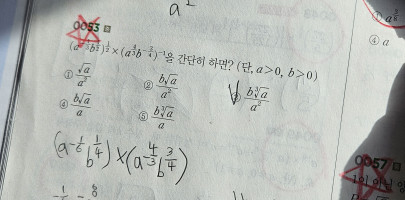 a²
0053
(a^{-1/3}b^{1/2})^{1/2} × (a^{4/3}b^{-3/4})^{-1}을 간단히 하면? (단, a>0, b>0)
① √a/a² ② b√a/a ③ b∛a/a²
④ b√a/a² ⑤ b∛a/a
(a^{-1/6} b^{1/4}) × (a^{-4/3} b^{3/4})
④ a
0057
1이 아닌